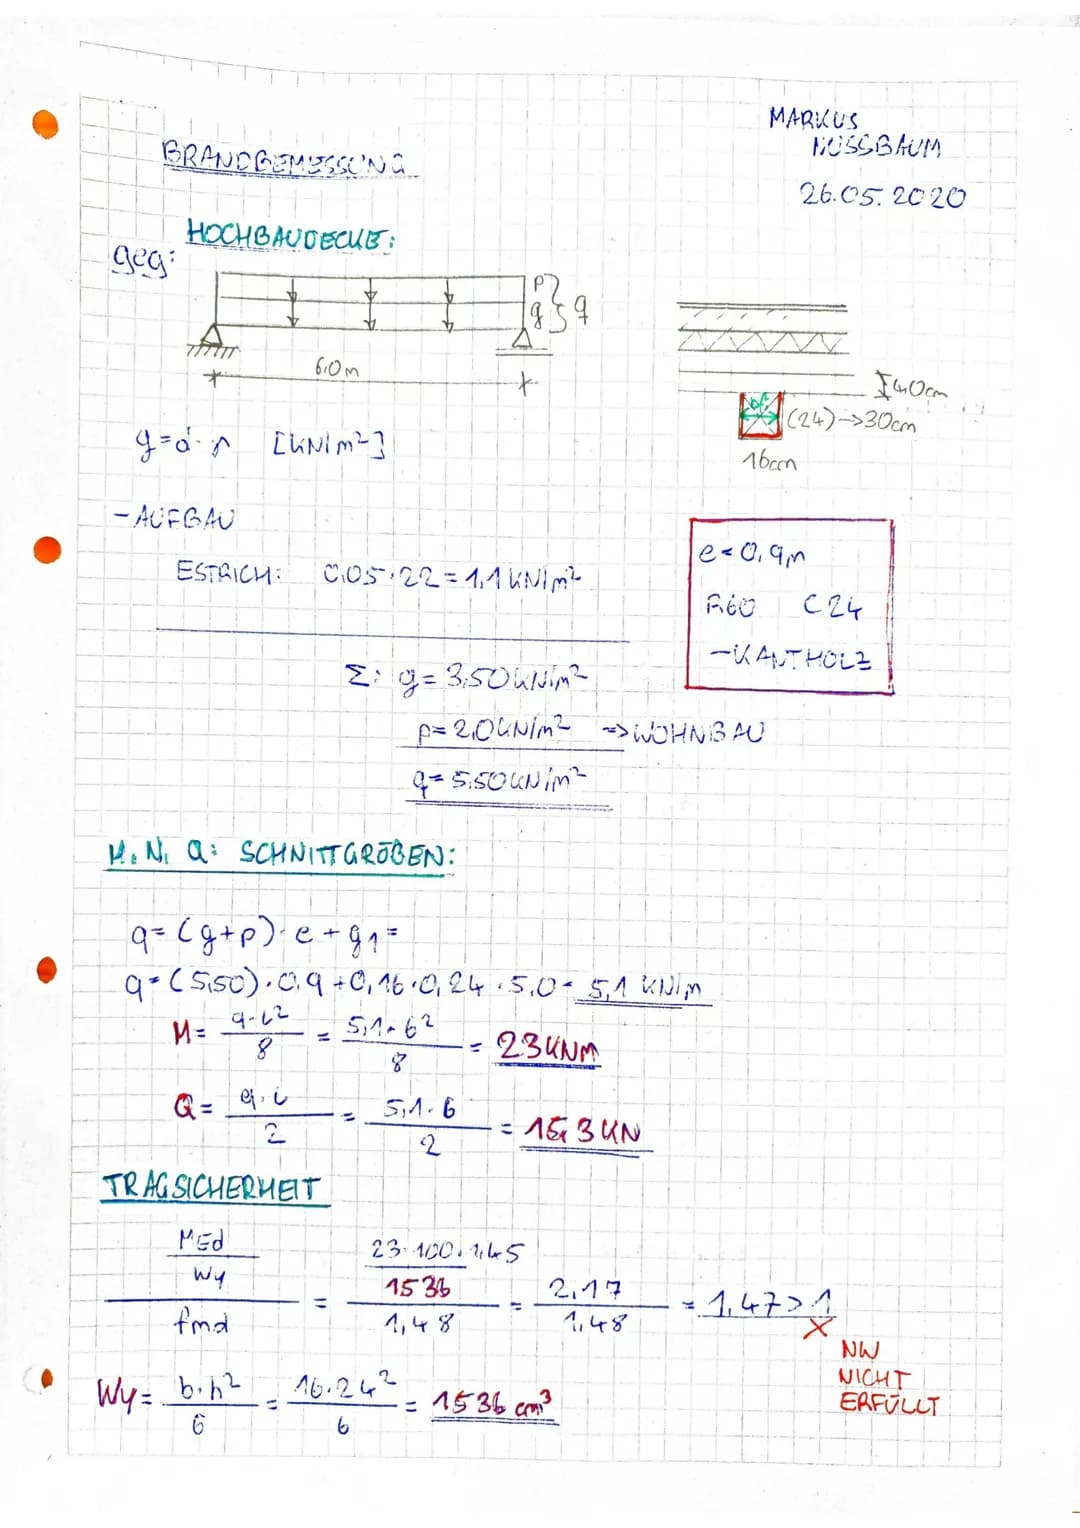 MARKUS
NUSSBAUM
26.05.2020
BRANDBEMESSUNG
HOCHBAUDECKE:
geg:
p
g } q
6,0m
40cm
bf
(24)->30cm
16cm
g=d·γ [kN/m²]
-AUFBAU
ESTRICH: 0,05·22=1,1 kN/m²
e=0,9m
R60 C24
-KANTHOLZ
Σ: g= 3,50 kN/m²
p= 2,0kN/m² => WOHNBAU
q= 5,50 kN/m²
M, N, Q: SCHNITTGRÖßEN:
q=(g+p)·e+g1=
q=(5,50)·0,9+0,16·0,24·5,0= 5,1 kN/m
M= q·l²/8 = 5,1·6²/8 = 23KNM
Q= q·l/2 = 5,1·6/2 = 15,3KN
TRAGSICHERHEIT
MEd/Wy/fmd = 23·100·1,45/1536/1,48 = 2,17/1,48 = 1,47>1
X
NW
NICHT
ERFÜLLT
Wy= b·h²/6 = 16·24²/6 = 1536 cm³